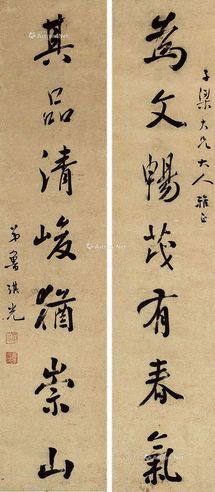 子梁大兄大人雅正
為文暢茂有春氣
其品清峻猶崇山
弟魯琪光